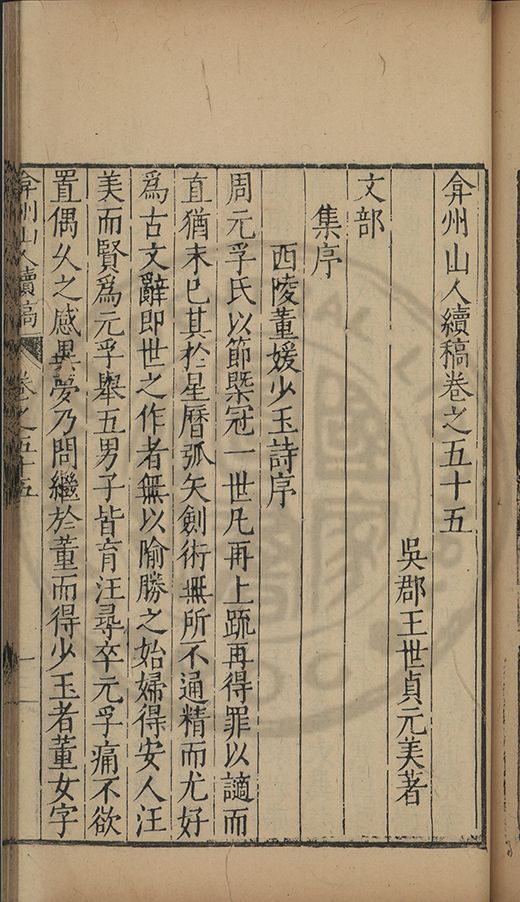 弇州山人續稿卷之五十五
吳郡王世貞元美著
文部
集序
西陵董媛少玉詩序
周元孚氏以節槩冠一世凡再上疏再得罪以謫而
直猶未已其於星曆弧矢劍術無所不通精而尤好
爲古文辭即世之作者無以喻勝之始婦得安人汪
美而賢爲元孚舉五男子皆育汪尋卒元孚痛不欲
置偶久之感異夢乃問繼於董而得少玉者董女字
弇州山人續稿 卷之五十五 一